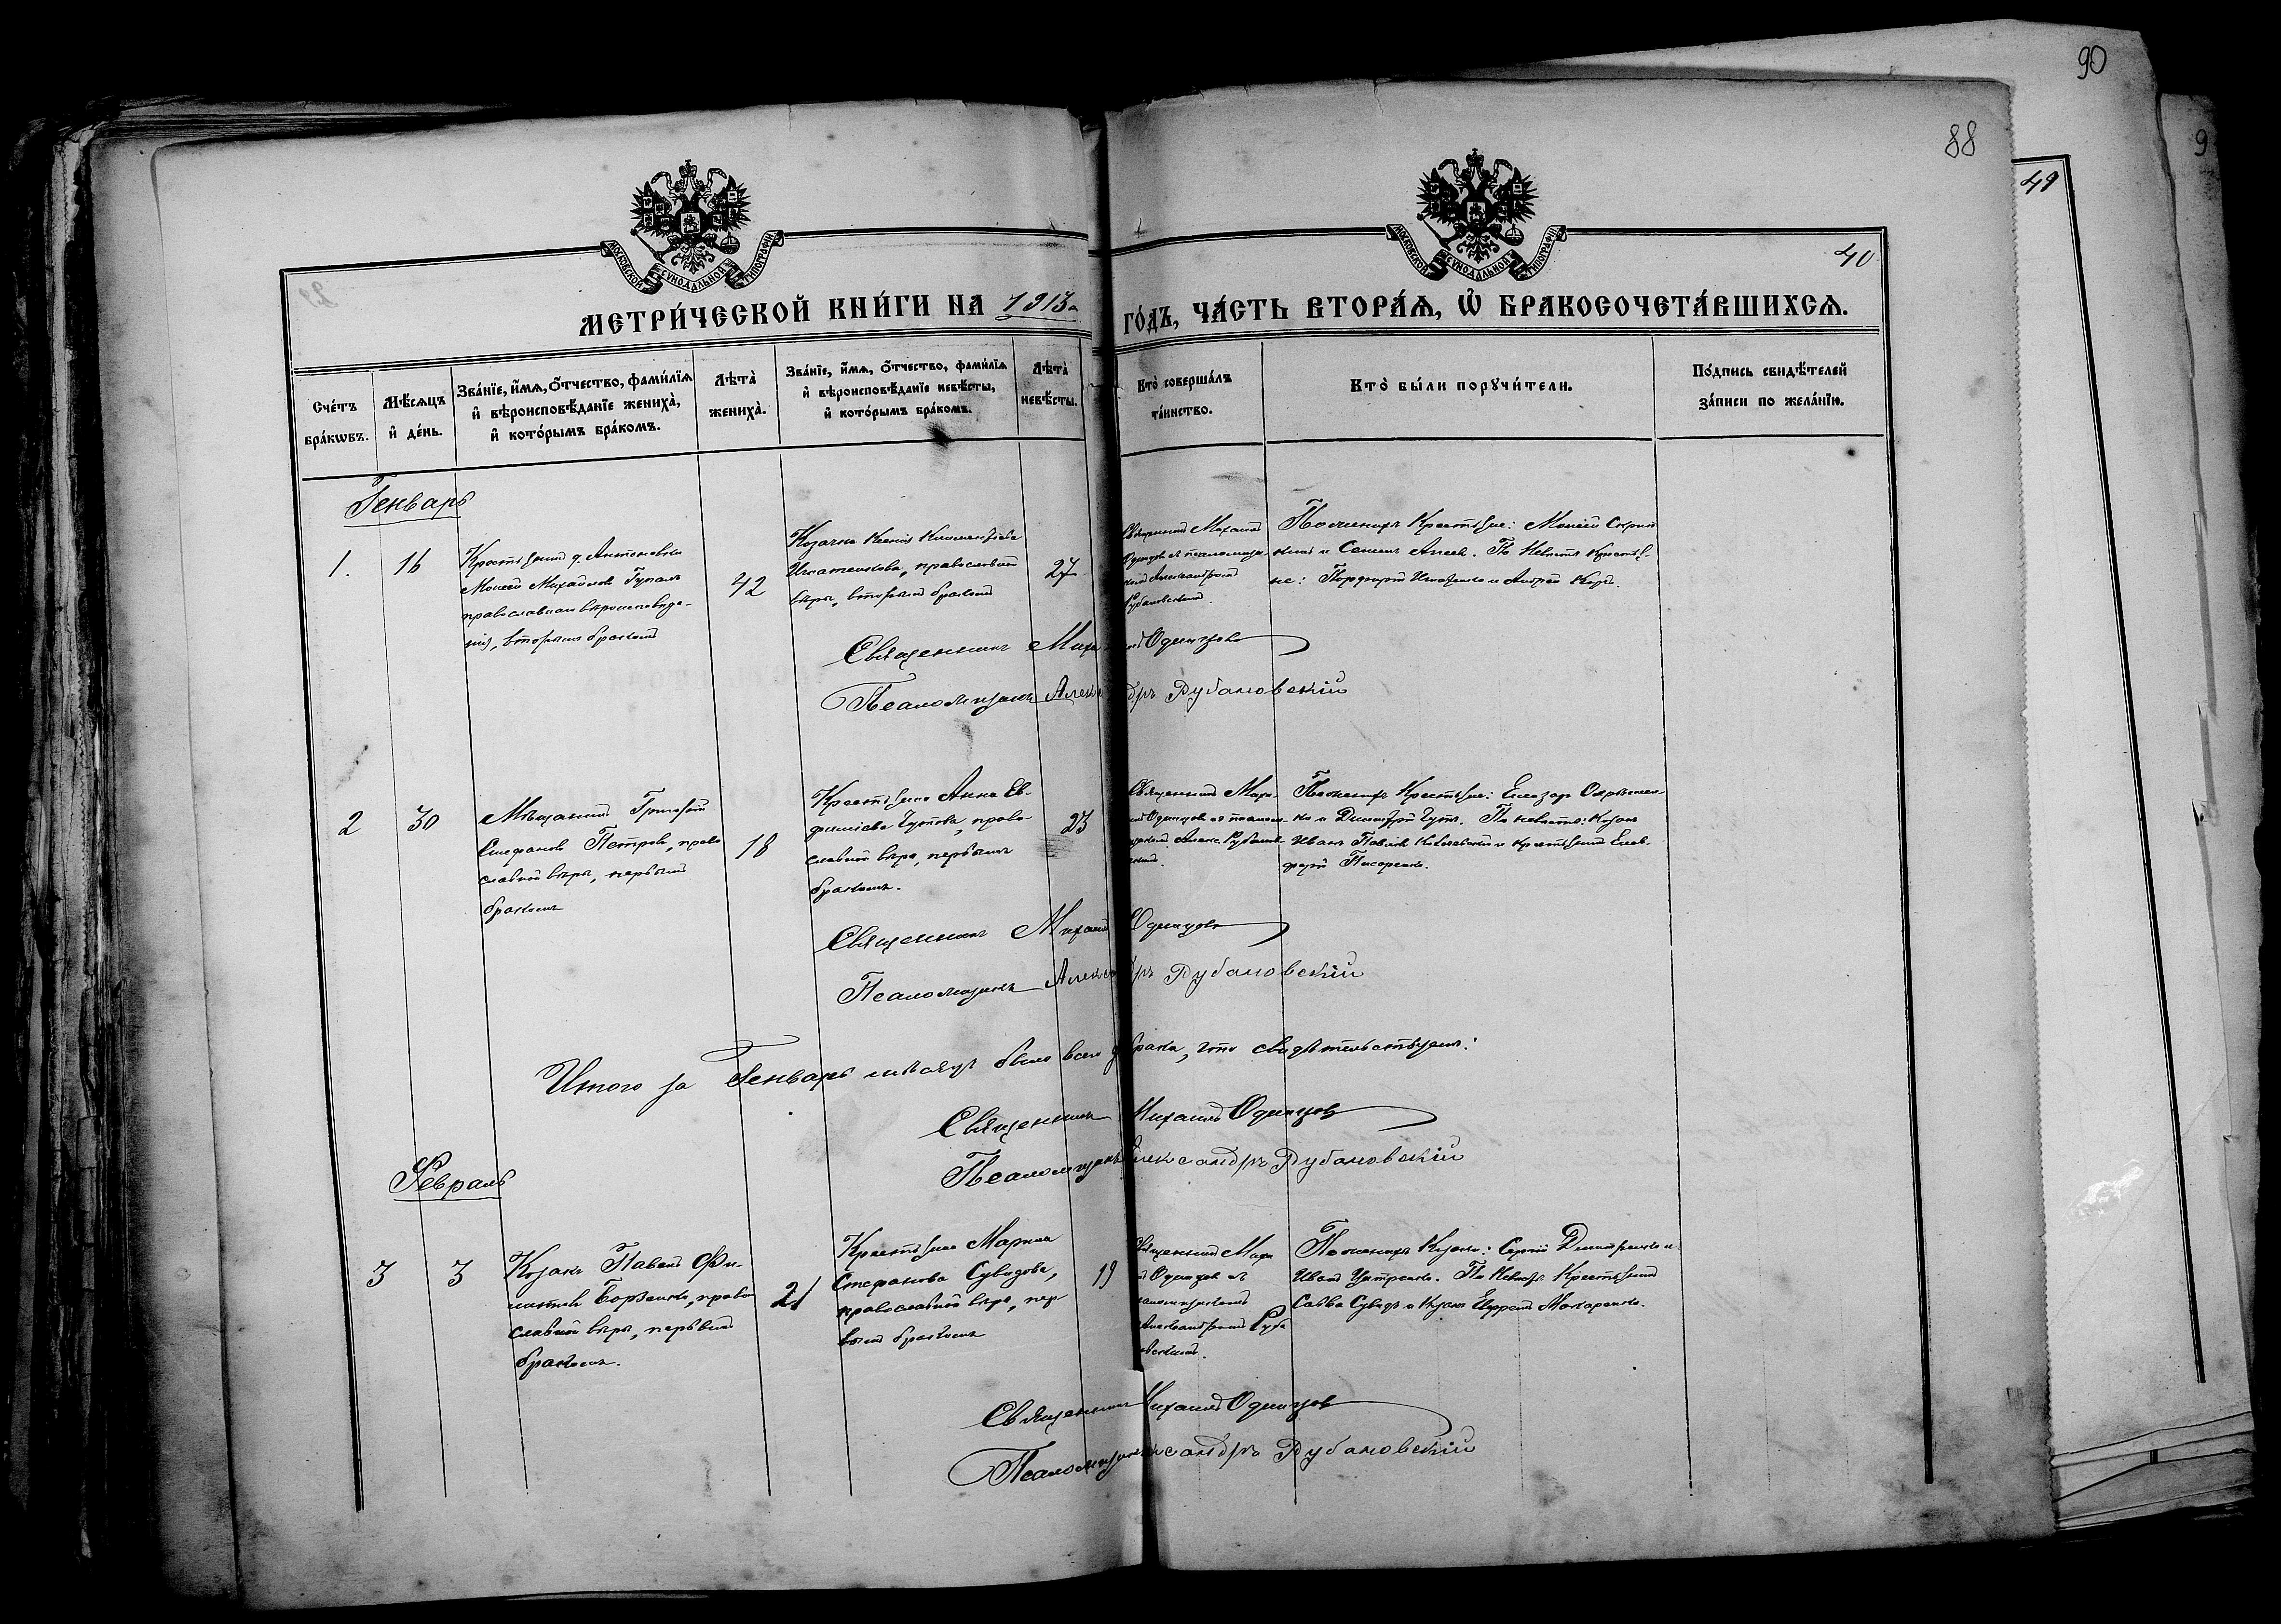 90
88
9
49
40
МОСКОВСКОЙ СУНОДАЛЬНОЙ ТИПОГРАФІИ
МОСКОВСКОЙ СУНОДАЛЬНОЙ ТИПОГРАФІИ
МЕТРИ́ЧЕСКОЙ КНИ́ГИ НА 1913 го́дъ, ЧА́СТЬ ВТОРА́Я, Ѡ҆ БРАКОСОЧЕТА́ВШИХСЯ.
Сче́тъ бра́кѡвъ.
Мѣ́сяцъ и҆ де́нь.
Зва́нїе, и҆́мя, ѻ҆́тчество, фами́лїя и҆ вѣроисповѣ́данїе жениха̀, и҆ кото́рымъ бра́комъ.
Лѣта̀ жениха̀.
Зва́нїе, и҆́мя, ѻ҆́тчество, фами́лїя и҆ вѣроисповѣ́данїе невѣ́сты, и҆ кото́рымъ бра́комъ.
Лѣта̀ невѣ́сты.
Кто̀ соверша́лъ та́инство.
Кто̀ бы́ли порꙋчи́тели.
По́дпись свидѣ́телей за́писи по жела́нїю.
Генварь
1.
16
Крестьянинъ д. Антоновки
Моисей Михайловъ Гупалъ
православнаго вѣроисповѣда-
нія, вторымъ бракомъ
42
Козачка Ксенія Климентьева
Игнатенкова, православной
вѣры, вторымъ бракомъ
27
Священникъ Михаилъ
Одинцовъ съ псаломщи-
комъ Александромъ
Рубановскимъ.
По женихѣ Крестьяне: Моисей
и Семенъ . По невѣстѣ крестья-
не: Порфирій Игнатенко и Андрей
Священникъ Михаилъ Одинцовъ
Псаломщикъ Александръ Рубановскій
2
30
Мѣщанинъ Григорій
Епифановъ Петровъ, право
славной вѣры, первымъ
бракомъ
18
Крестьянка Анна Ев-
фиміева , право-
славной вѣры, первымъ
бракомъ.
23
Священникъ Миха
илъ Одинцовъ съ псалом-
щикомъ Алекс. Рубанов
скимъ.
По женихѣ Крестьяне: Елеазаръ
и Димитрій . По невѣстѣ: козакъ
Иванъ Павловъ и крестьянинъ Елев-
ферій Писаренко.
Священникъ Михаилъ Одинцовъ
Псаломщикъ Александръ Рубановскій
Итого за Генварь мѣсяцъ было всего 2 брака, что свидѣтельствуемъ:
Священникъ Михаилъ Одинцовъ
Псаломщикъ Александръ Рубановскій
Февраль
3
3
Козакъ Павелъ Фи-
липповъ Борзенко, право
славной вѣры, первымъ
бракомъ.
21
Крестьянка Марина
Стефанова Сувидова,
православной вѣры, пер
вымъ бракомъ
19
Священникъ Миха
илъ Одинцовъ съ
псаломщикомъ
Александромъ Руба
новскимъ.
По женихѣ Козаки: Сергій Димитренко и
Иванъ . По невѣстѣ Крестьянинъ
Савва Сувидъ и козакъ Ефремъ Макаренко.
Священникъ Михаилъ Одинцовъ
Псаломщикъ Александръ Рубановскій